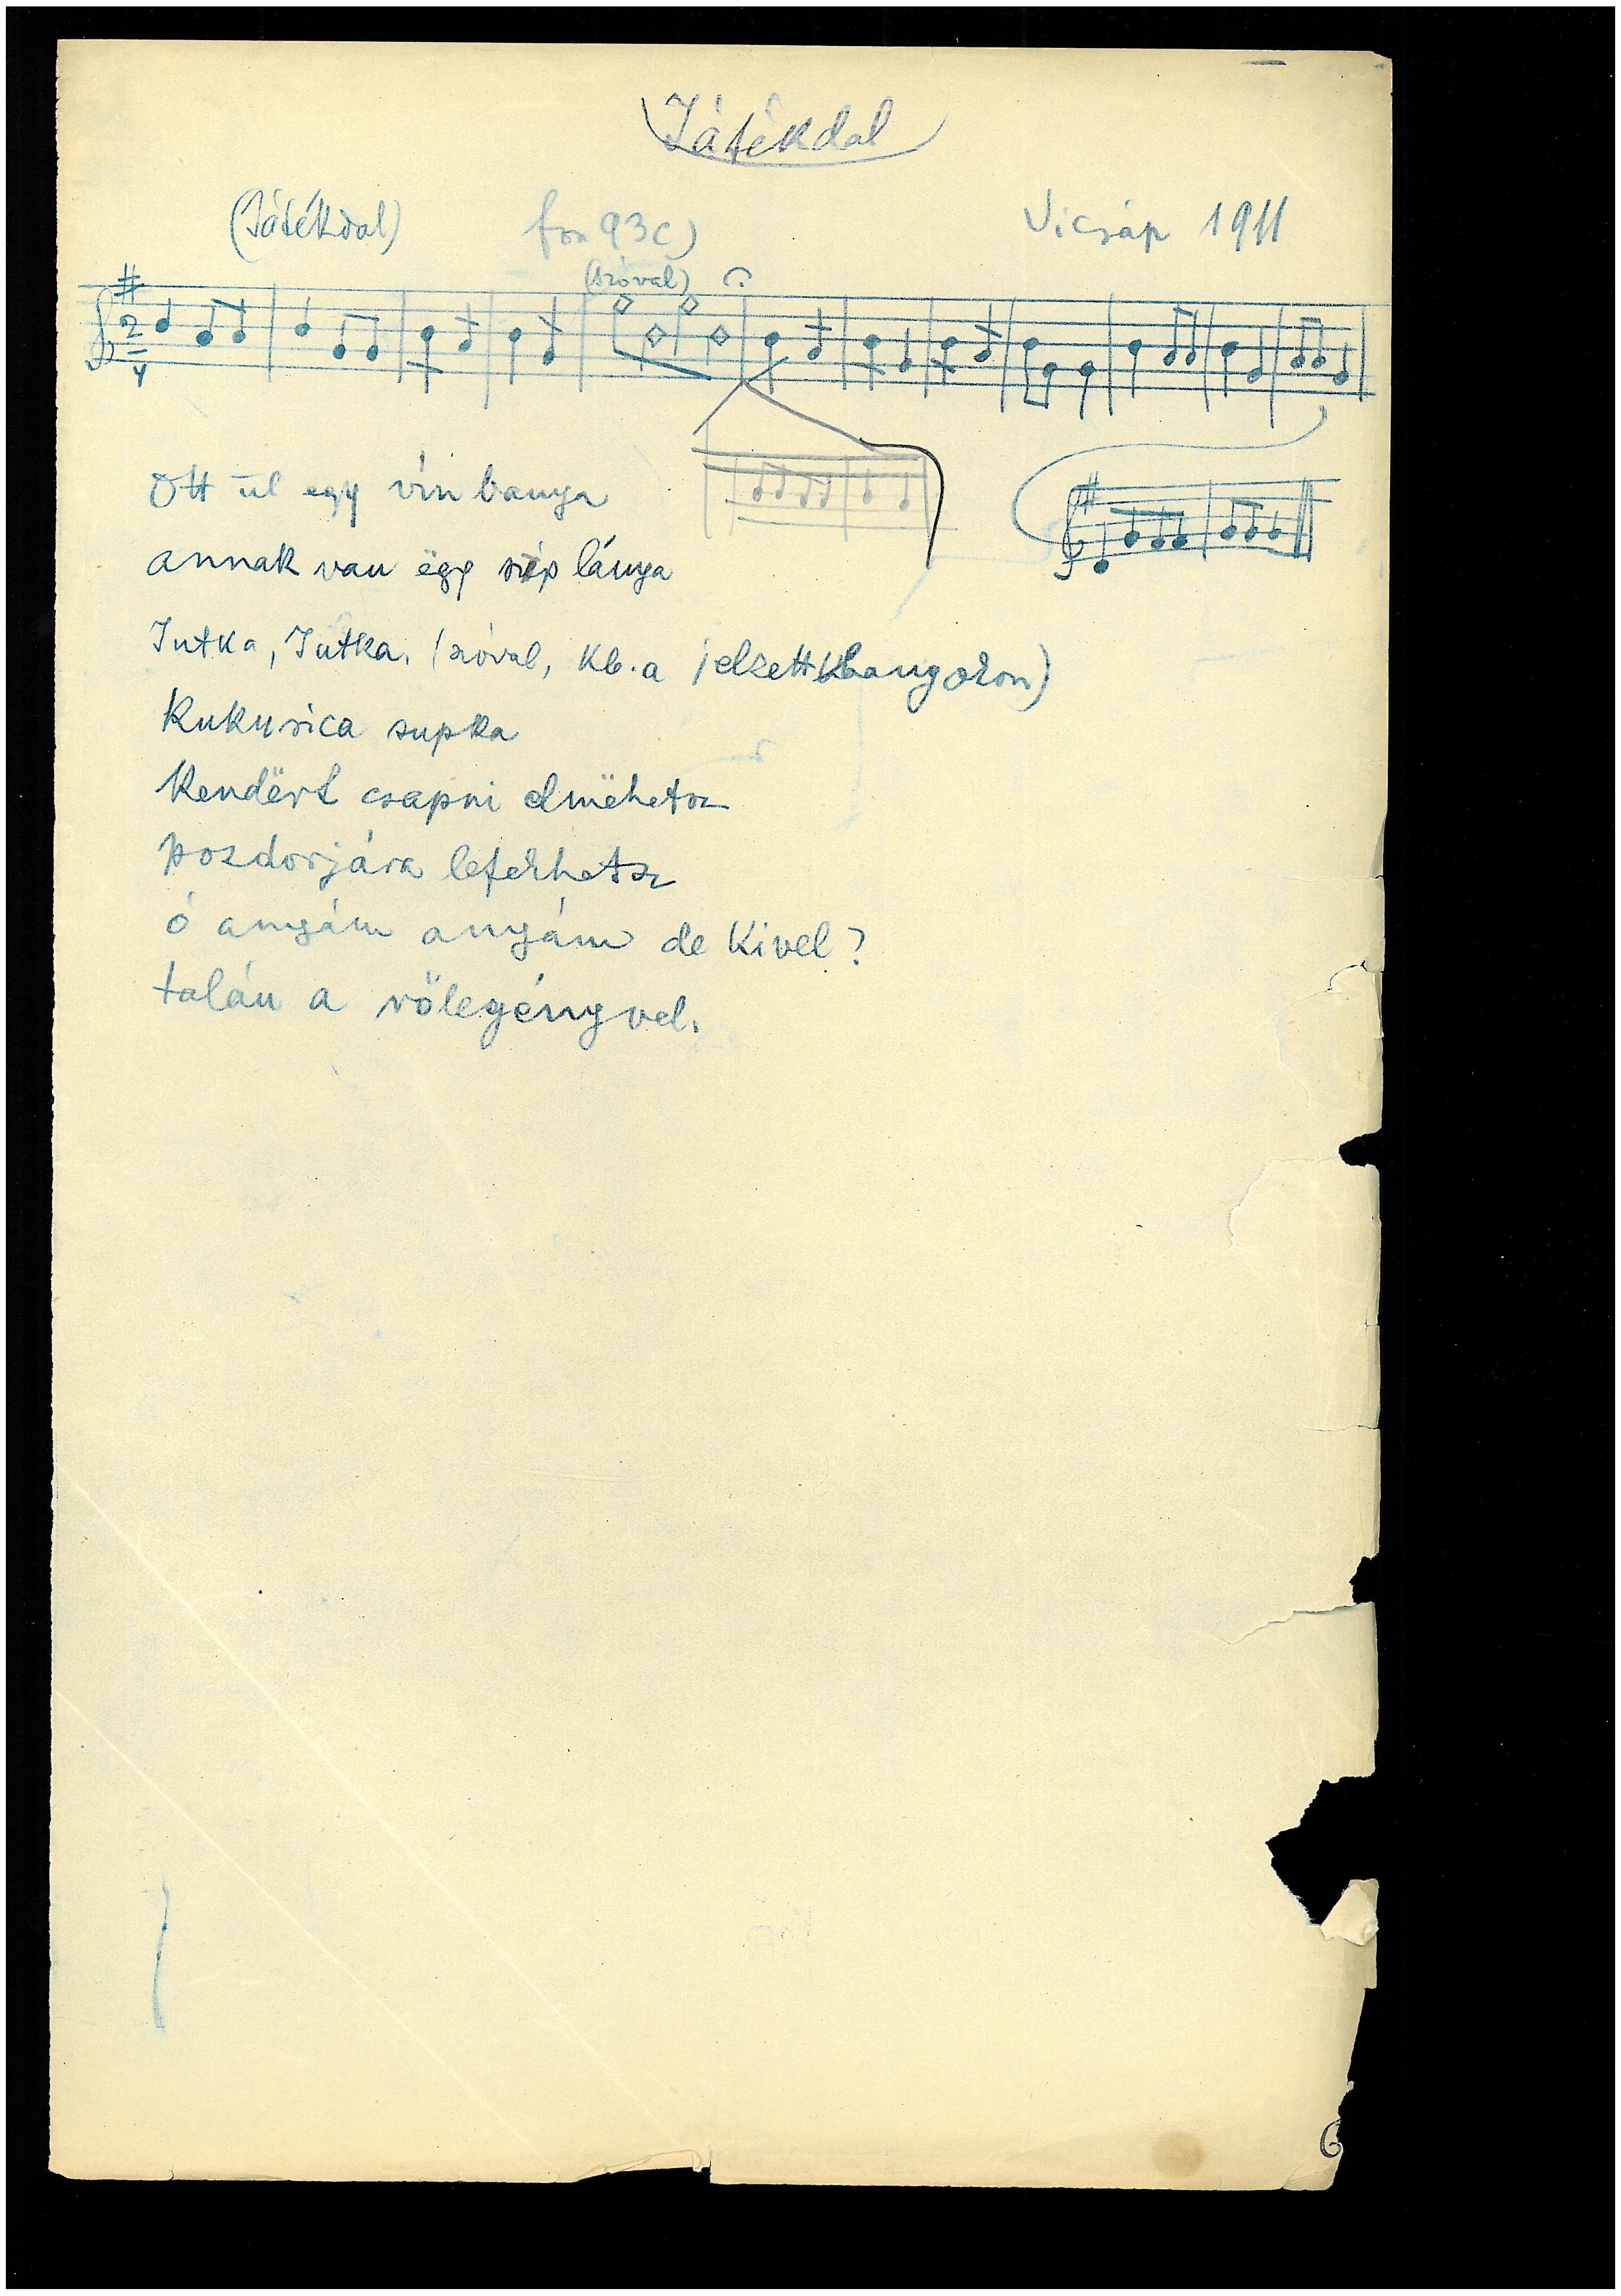 Játékdal
(Játékdal) fon 93c) Vicsáp 1911
(szóval)
2
4
Ott ül egy vín banya
annak van ëgy szép lánya
Jutka, Jutka. (szóval, kb. a jelzett hangokon)
Kukurica supka
Kendërt csapni elmëhetsz
pozdorjára lefekhetsz
ó anyám anyám de Kivel?
talán a vőlegényvel.
6